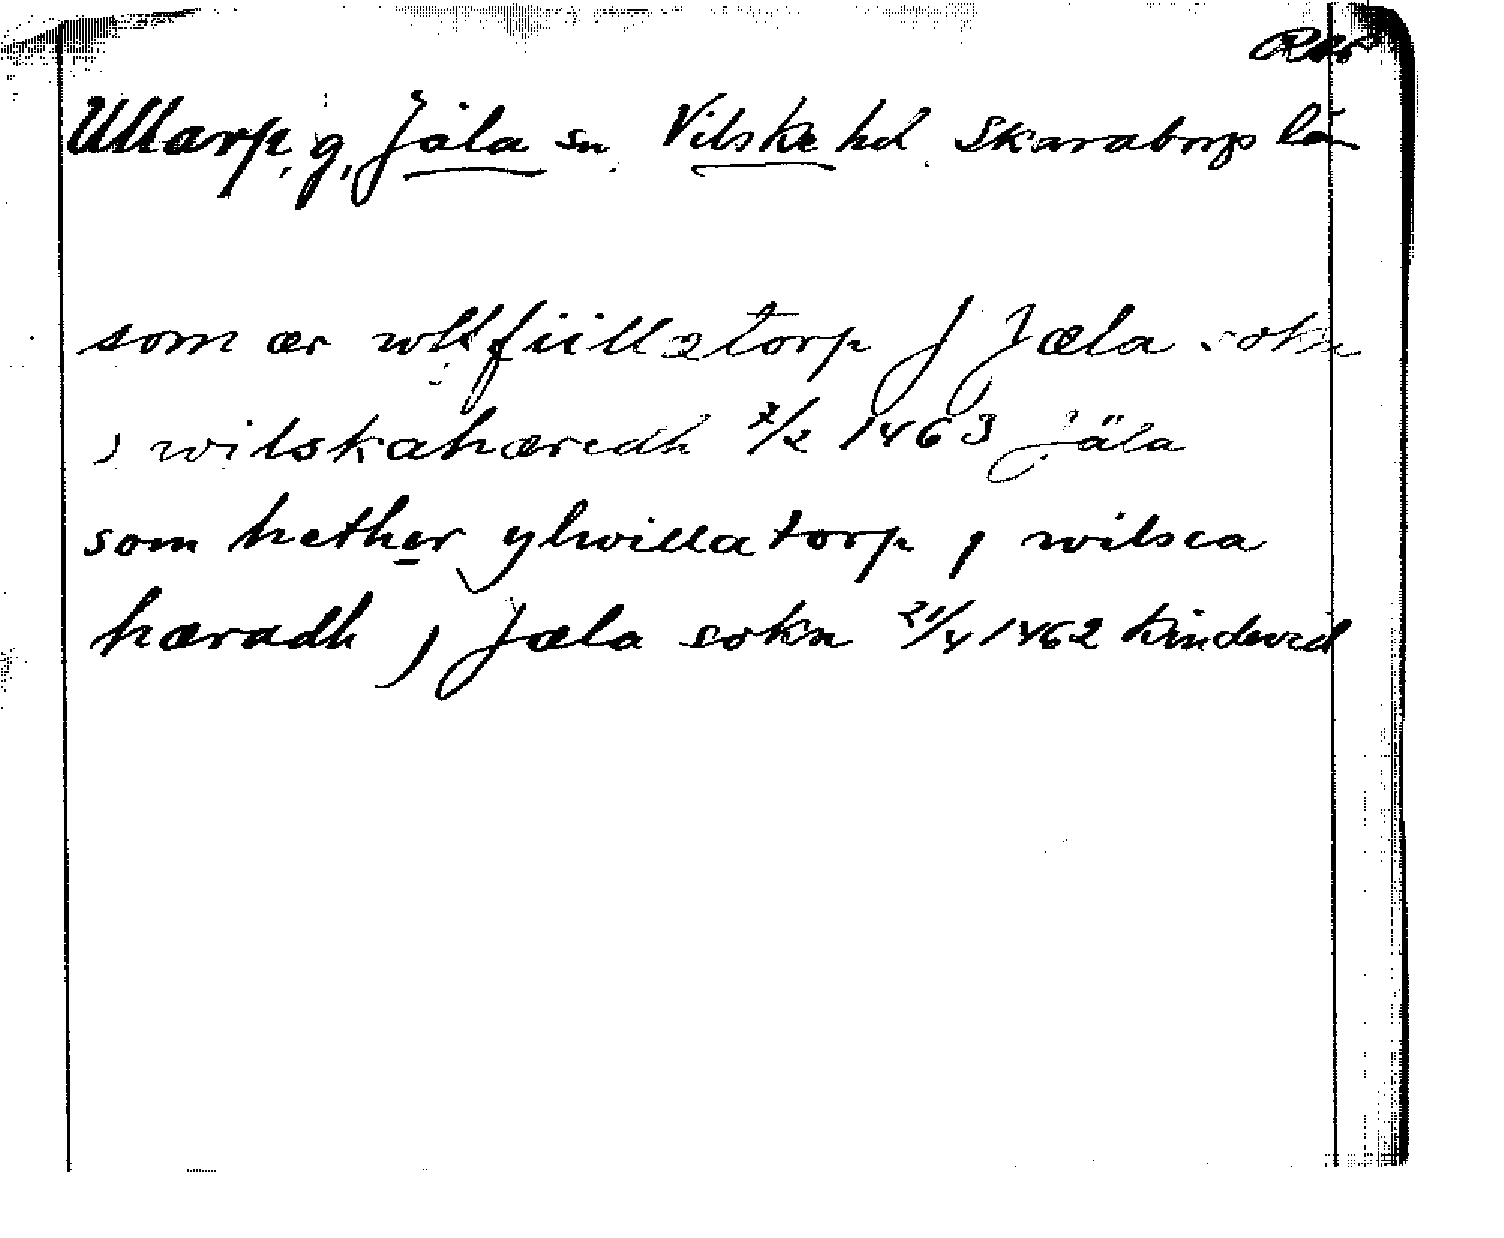 Ullarp, g, Jäla sn Vilske hd Skaraborgs län
som ær wlffüllatorp J Jæla sokn
j wilskahæredh 7/2 1463 Jäla
som hether ylwillatorp j wilsca
hæradh j Jæla sokn 21/4 1462 Kindevid